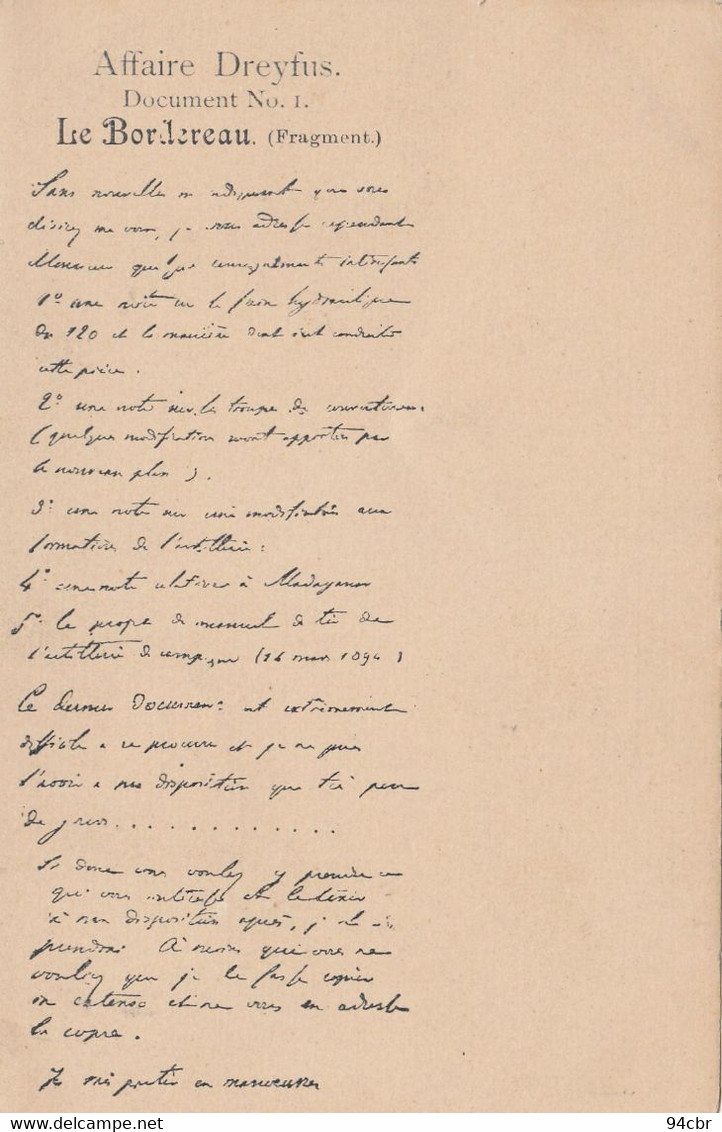 Affaire Dreyfus.
Document No. 1.
Le Bordereau. (Fragment.)
Sans nouvelles m'indiquant que vous
désirez me voir, je vous adresse cependant
Monsieur quelques renseignements intéressants
1º une note sur le frein hydraulique
du 120 et la manière dont s'est conduite
cette pièce.
2º une note sur les troupes de couverture.
(quelques modifications seront apportées par
le nouveau plan).
3º une note sur une modification aux
formations de l'artillerie:
4º une note relative à Madagascar
5º le projet de manuel de tir de
l'artillerie de campagne (14 mars 1894)
Ce dernier document est extrêmement
difficile à se procurer et je ne puis
l'avoir à ma disposition que très peu
de jours. . . . . . . . . . . . .
Si donc vous voulez y prendre ce
qui vous intéresse et le tenir
à ma disposition après, je le
prendrai. À moins que vous ne
vouliez que je le fasse copier
in extenso et ne vous en adresse
la copie.
Je vais partir en manoeuvres
94cbr